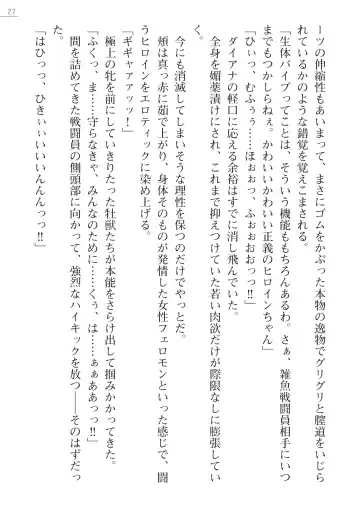 27
ーツの伸縮性もあいまって、まさにゴムをかぶった本物の逸物でグリグリと膣道をいじら
れているかのような錯覚を覚えこまされる。
「生体バイブってことは、そういう機能ももちろんあるわ。さぁ、雑魚戦闘員相手にいつ
までもつかしらねぇ。かわいいかわいい正義のヒロインちゃん」
「ひぉっ、むふぅぅ……ほぉぉっ、ふぉぉおおっっ‼」
ダイアナの軽口に応える余裕はすでに消し飛んでいた。
全身を媚薬漬けにされ、これまで抑えつけていた若い肉欲だけが際限なしに膨張してい
く。
今にも消滅してしまいそうな理性を保つのだけでやっとだ。
頬は真っ赤に茹で上がり、身体そのものが発情した女性フェロモンといった感じで、闘
うヒロインをエロティックに染め上げる。
「ギギャァァアッッ！」
極上の牝を前にしていきりたった牡獣たちが本能をさらけ出して掴みかかってきた。
「ふくっ、ま……守らなきゃ、みんなのために……くぅ、は……ぁぁああっっ‼」
間を詰めてきた戦闘員の側頭部に向かって、強烈なハイキックを放つ――そのはずだっ
た。
「はひっっ、ひきぃぃいいいんんんっっ‼」